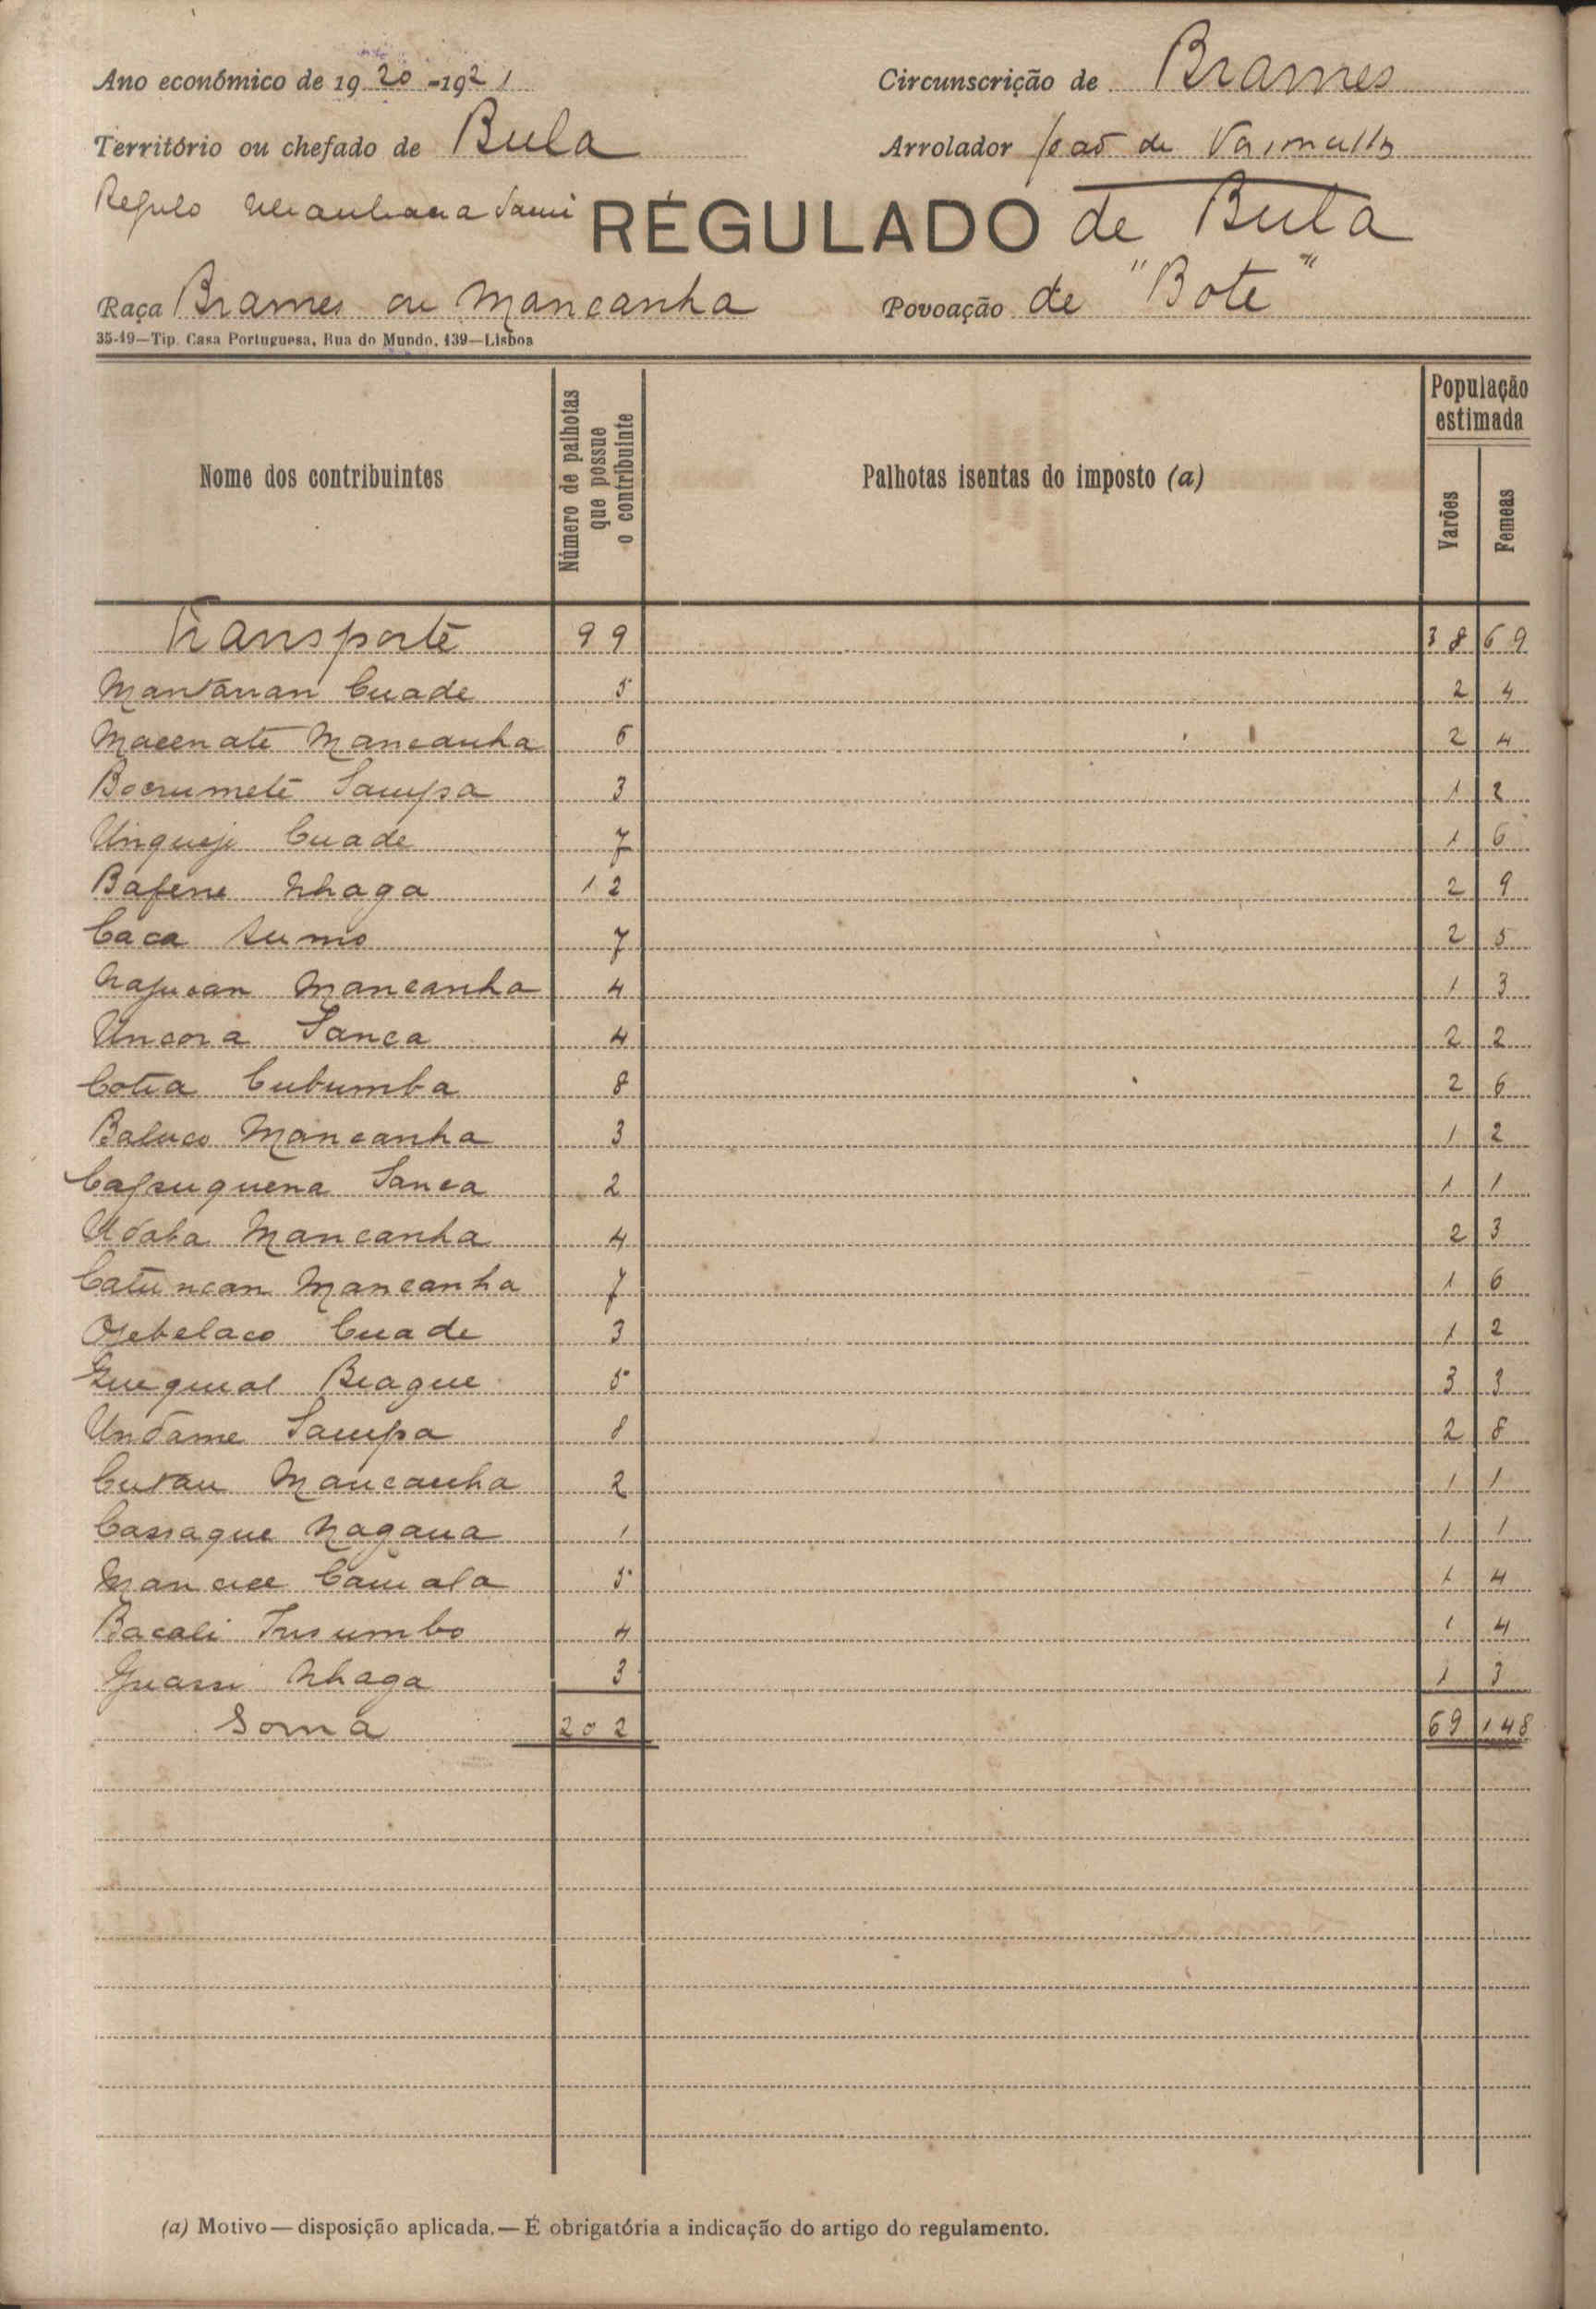 Ano económico de 1920-1921
Circunscrição de Brames
Território ou chefado de Bula
Arrolador João de
Regulo
RÉGULADO de Bula
Raça Brames ou Mancanha
Povoação de "Bote"
35-19—Tip. Casa Portuguesa, Rua do Mundo, 139—Lisboa
Nome dos contribuintes
Número de palhotas que possue o contribuinte
Palhotas isentas do imposto (a)
População estimada
Varões
Femeas
Transporte 99 38 69
Cuade 5 2 4
Macenate Mancanha 6 2 4
Bocrumete Sampa 3 1 2
Unqueje Cuade 7 1 6
Bafene Nhaga 12 2 9
Caca Sumo 7 2 5
Mancanha 4 1 3
Uncora Sanca 4 2 2
Cotia Cubumba 8 2 6
Baluco Mancanha 3 1 2
Capuquena Sanca 2 1 1
Udaba Mancanha 4 2 3
Catuncan Mancanha 7 1 6
Ojebelaco Cuade 3 1 2
Quequial Biague 5 3 3
Undame Sampa 8 2 8
Mancanha 2 1 1
Cassaque Nagana 1 1 1
5 1 4
Bacali 4 1 4
Guassi Nhaga 3 1 3
Soma 202 69 148
(a) Motivo—disposição aplicada.—É obrigatória a indicação do artigo do regulamento.